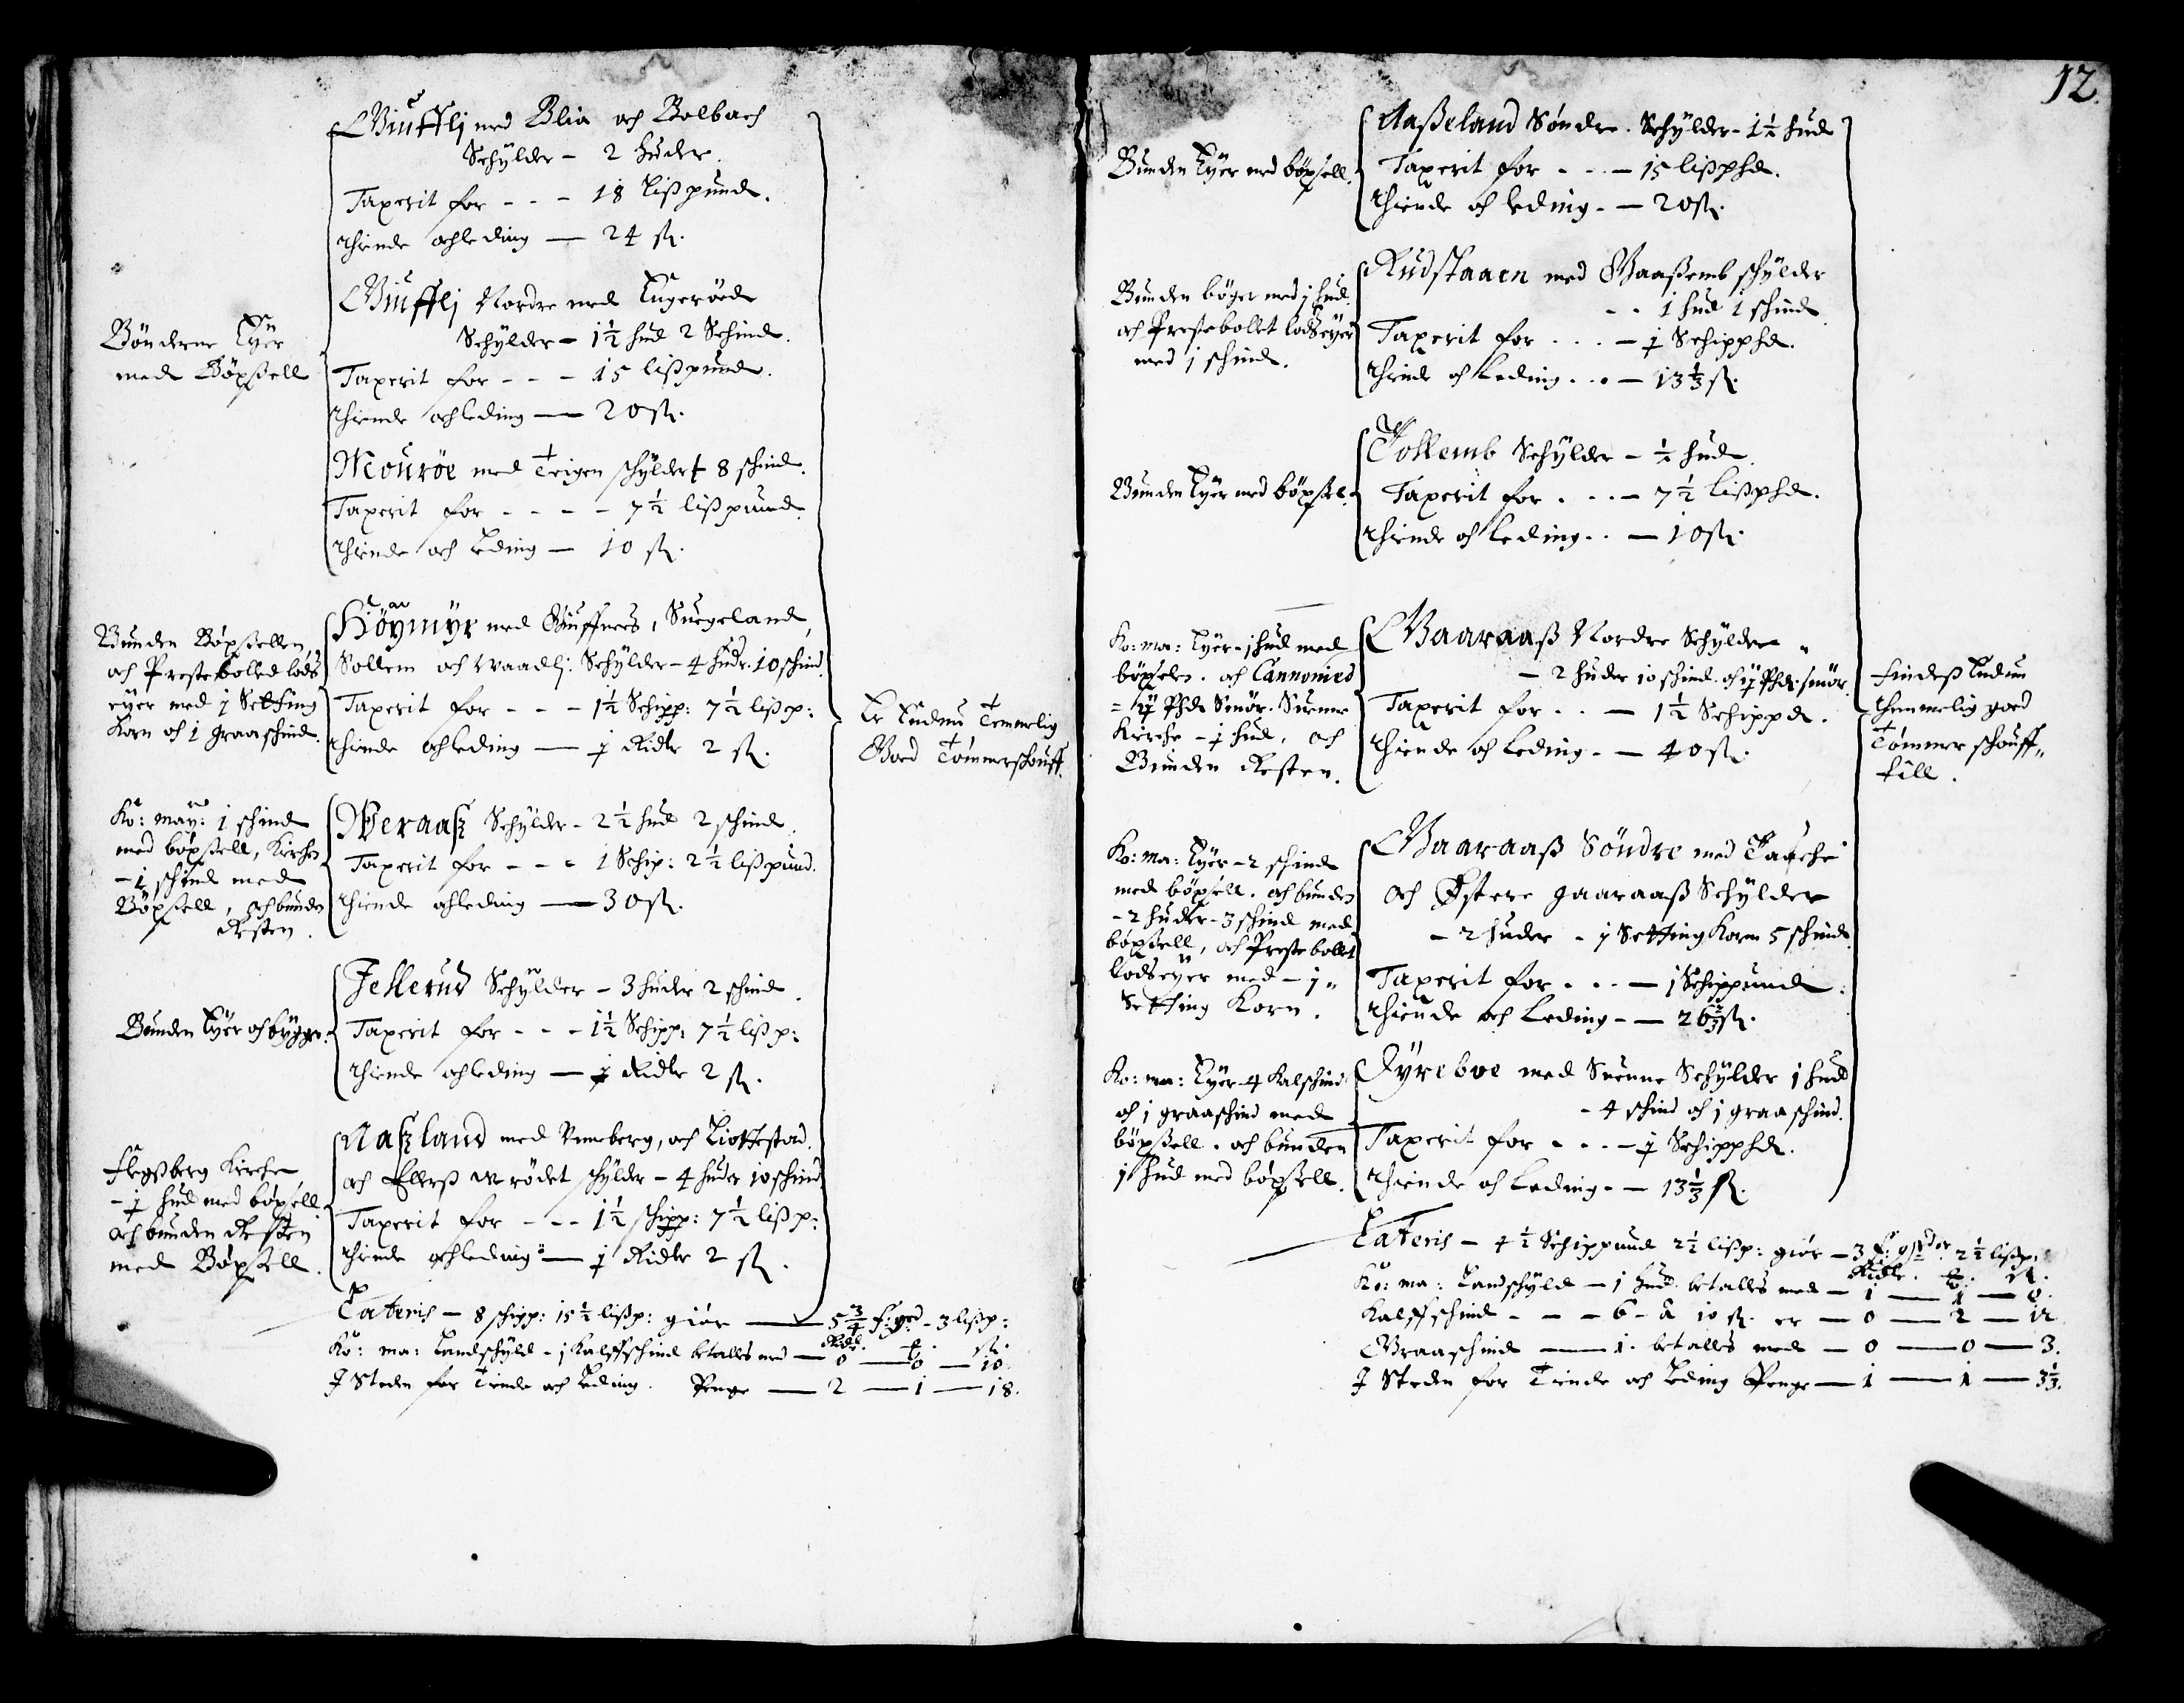 Giuffli med Blia och Bolbach
Schÿlder - 2 huder.
Taxerit for - - - 18 Lißpund.
Thiende och leding — 24 sk.
Bönderne Eÿer
med Böxsell
Giuffli Nordre med Lugeröed
Schÿlder - 1½ hud 2 Schind.
Taxerit for - - - 15 lißpund.
Thiende och leding — 20 sk.
Mouröe med Teigen schÿldert 8 schind.
Taxerit for - - - - 7½ lißpund.
Thiende och Leding — 10 sk.
Bunden Böxsellen,
och Prestebolled lods
eÿer med j Setting
Korn och 1 graaschind.
Höÿmÿr med Guffnes, Suegeland,
Sollem och Waadlj: Schÿlder - 4 hudr. 10 schind.
Taxerit for - - - 1½ Schipp: 7½ lißp:
Thiende och leding — j Ridlr 2 sk.
Er Endnu Temmelig
Goed Tömmerschouff
Ko: maÿ: 1 schind
med böxsell, Kirchen
- 1 schind med
Böxsell, och bunden
Resten.
Weraasz Schÿlder - 2½ hud 2 schind.
Taxerit for - - - 1 Schip: 2½ lißpund.
Thiende och leding — 30 sk.
Bunden Eÿer och bÿgger.
Jellerud Schÿlder - 3 huder 2 schind.
Taxerit for - - - 1½ Schipp: 7½ lißp:
Thiende och leding — j Ridlr 2 sk.
Flegßberg Kirche
- j hud med böxsell.
och bunden Resten
med Böxsell.
Naszland med Vnneberg, och Liottestad.
och Ellerß W rödet schÿlder - 4 huder 10 schind
Taxerit for - - - 1½ schipp: 7½ lißp:
Thiende och leding — j Ridlr 2 sk.
Lateris - 8 schipp: 15½ lißp: giör — 5¾ f: grd - 3 lißp:
Ridlr. sk.
Ko: ma: Landschÿld - j Kalffschind betalles med — 0 — 0 — 10.
J Steden for Tiende och Leding. Penge — 2 — 1 — 18.
12.
Bunden Eÿer med böxsell.
Aaßeland Söndre. Schÿlder - 1½ hud
Taxerit for - - - 15 lißphd.
Thiende och leding - — 20 sk.
Bunden böger med j hud.
och Prestebollet lodseÿer
med j schind.
Rudstaaen med Gaaßemb schÿlder
- - 1 hud 1 schind
Taxerit for - - - j Schipphd.
Thiende och Leding - - — 13⅓ sk.
Bunden Eÿer med böxsel.
Tollemb Schÿlder - ½ hud.
Taxerit for - - - 7½ Lißphd.
Thiende och Leding - - — 10 sk.
Ko: ma: Eÿer - j hud med
böxselen. och Cannonied
Phd Smör. Suenne
Kirche - j hud, och
Bunden Resten.
Gaaraaß Nordre Schÿlder
- 2 huder 10 schind. och Phd. smör.
Taxerit for - - — 1½ Schippd.
Thiende och Leding - — 40 sk.
Findeß Endnu
themmelig goed
Tömmer schouff
till.
Ko: ma: Eÿer - 2 schind
med böxsell. och bunden
- 2 huder - 3 schind med
böxsell, och Prestebollet
lodseÿer med - j
Setting Korn.
Gaaraaß Söndre med Taache
och Østere Gaaraaß Schÿlder
- 2 huder - j Setting Korn 5 schind.
Taxerit for - - - — j Schippund.
Thiende och Leding - — 26⅔ sk.
Ko: ma: Eÿer - 4 Kalschind
och j graaschind med
böxsell. och bunden
j hud med böxsell.
Fÿreboe med Suenne Schÿlder j hud
- 4 schind och j graaschind.
Taxerit for - - - - j Schipphd.
Thiende och Leding - — 13⅓ sk.
Lateris - 4½ Schippund 2½ lißp: giör - 3 f: grder 2½ lißp:
Ridlr. sk.
Ko: ma: Landschÿld - 1 hud betalles med - 1 — 1 — 0.
Kalffschind - - - 6 - à 10 sk. er - 0 — 2 — 12
Graaschind — 1. betalles med - 0 — 0 — 3.
J Steden for Tiende och Leding Penge — 1 — 1 — 3⅓.